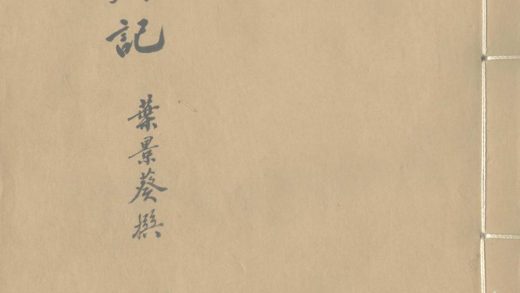 記
葉景葵撰